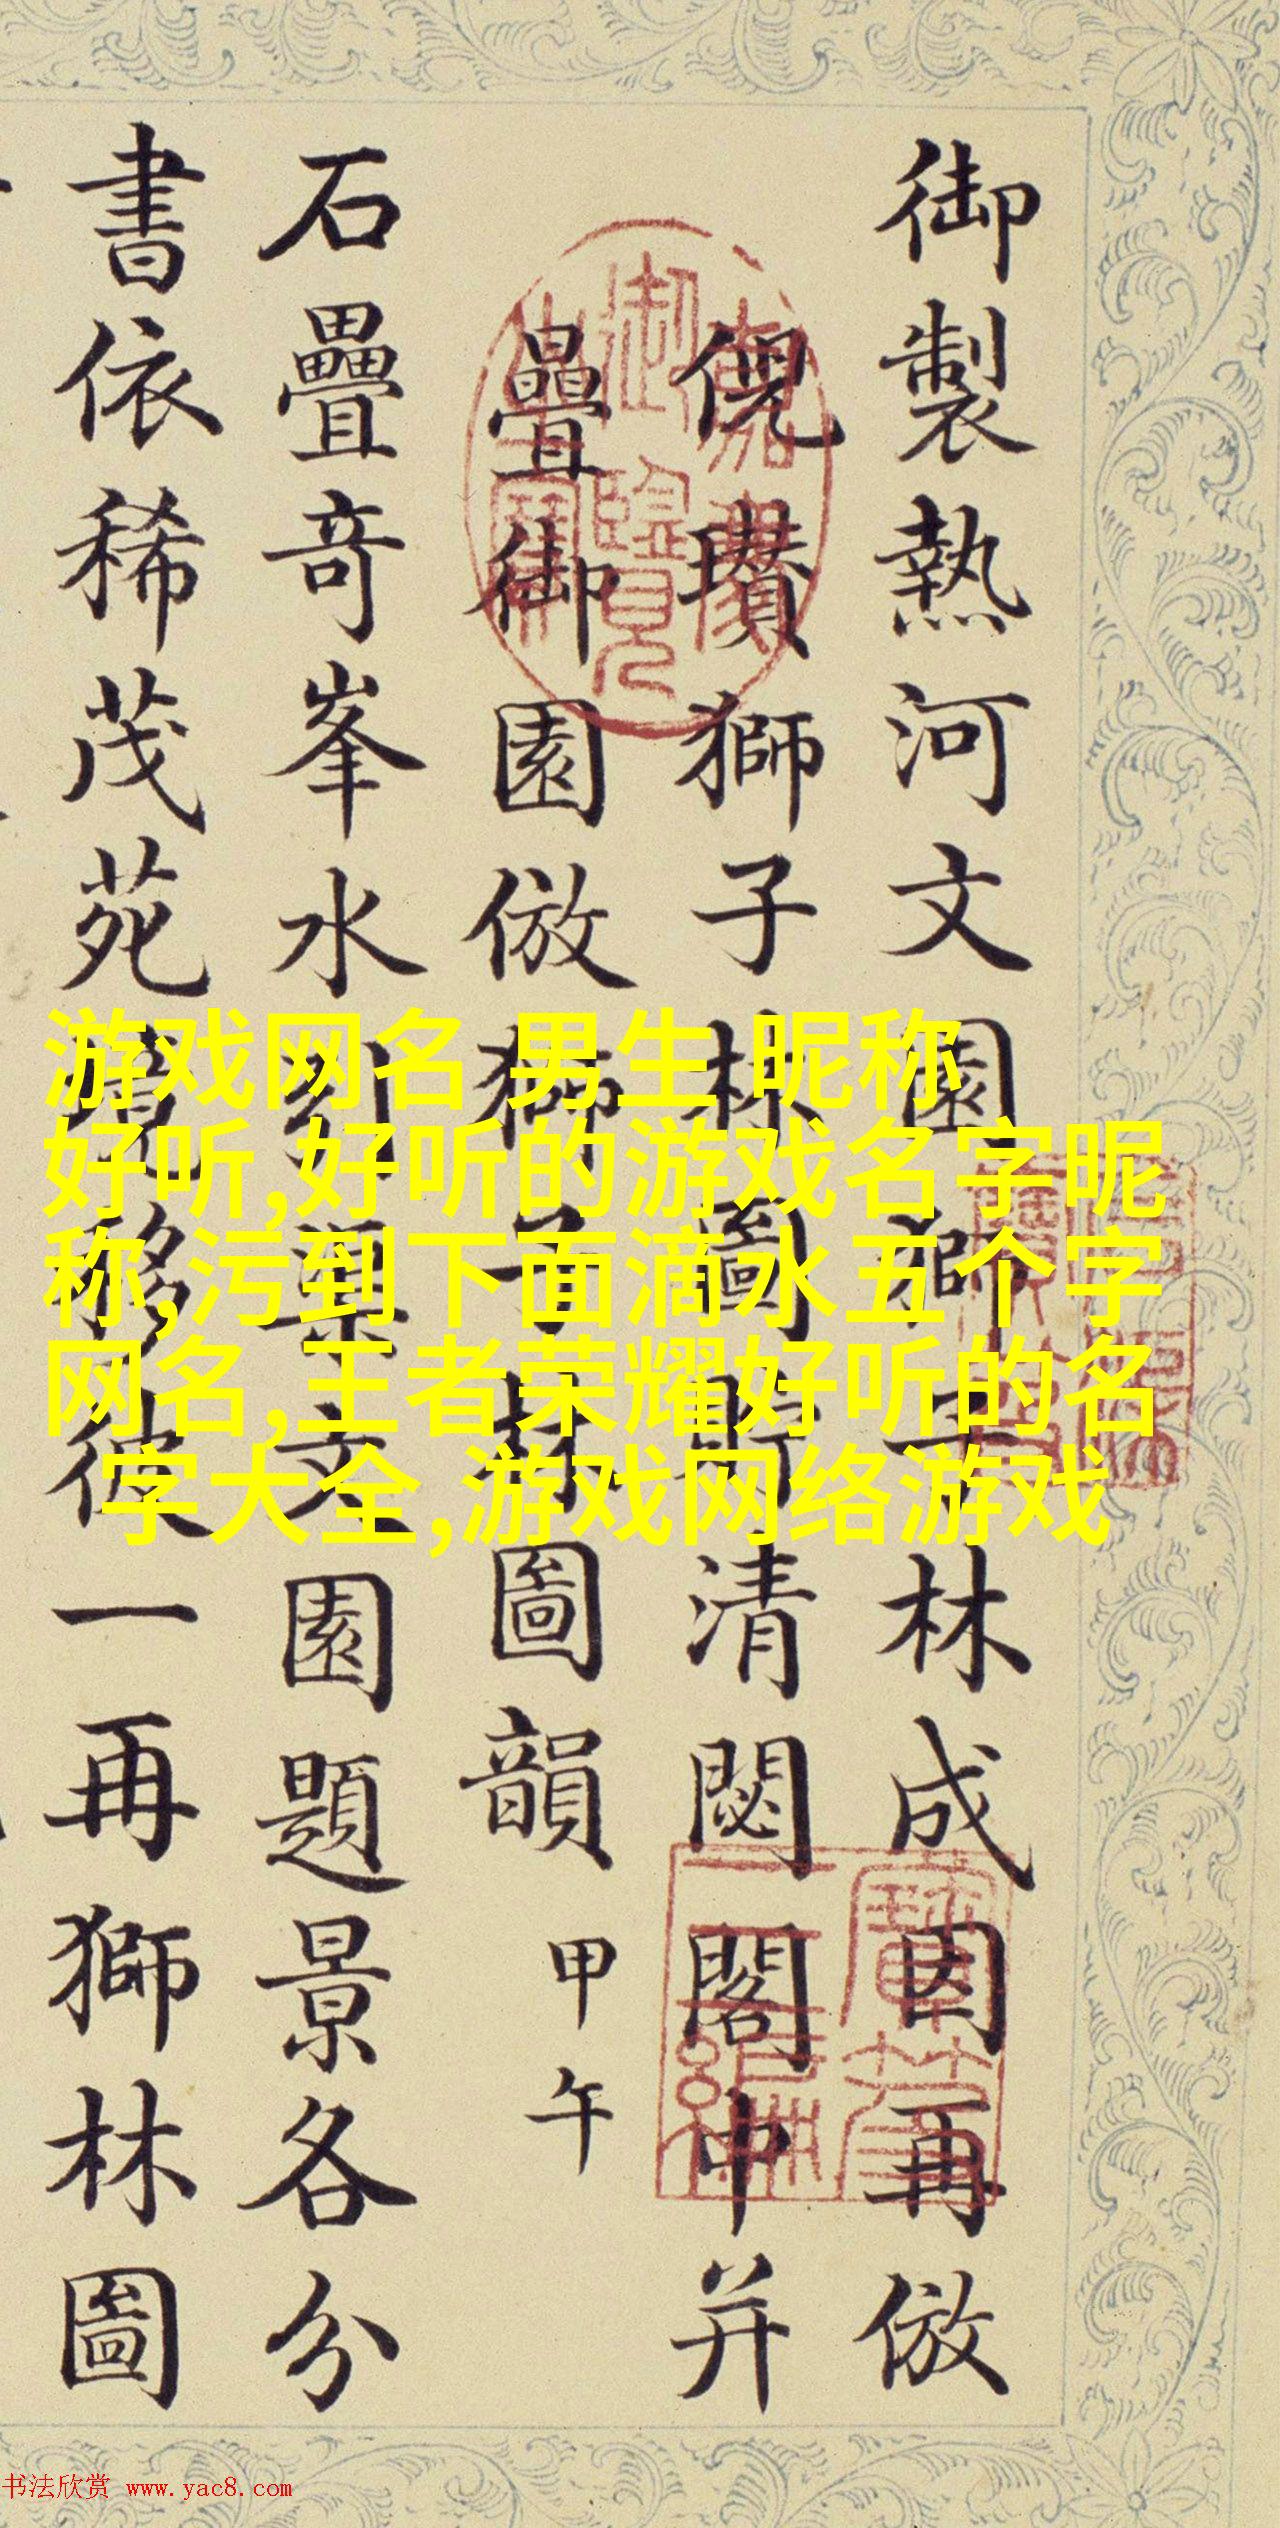 御製熱河文園獅子林成因再倣
倪瓚獅子林圖貯清閟閣中并
曡御園倣獅子林圖韻 甲午
石疊竒峯水文園題景各分
書依稀茂苑境移彼一再獅林圖
游戏网名 男生 昵称
好听,好听的游戏名字昵
称,污到下面滴水五个字
网名,王者荣耀好听的名
字大全,游戏网络游戏
嘉慶御覽之寶
书法欣赏 www.yac8.com